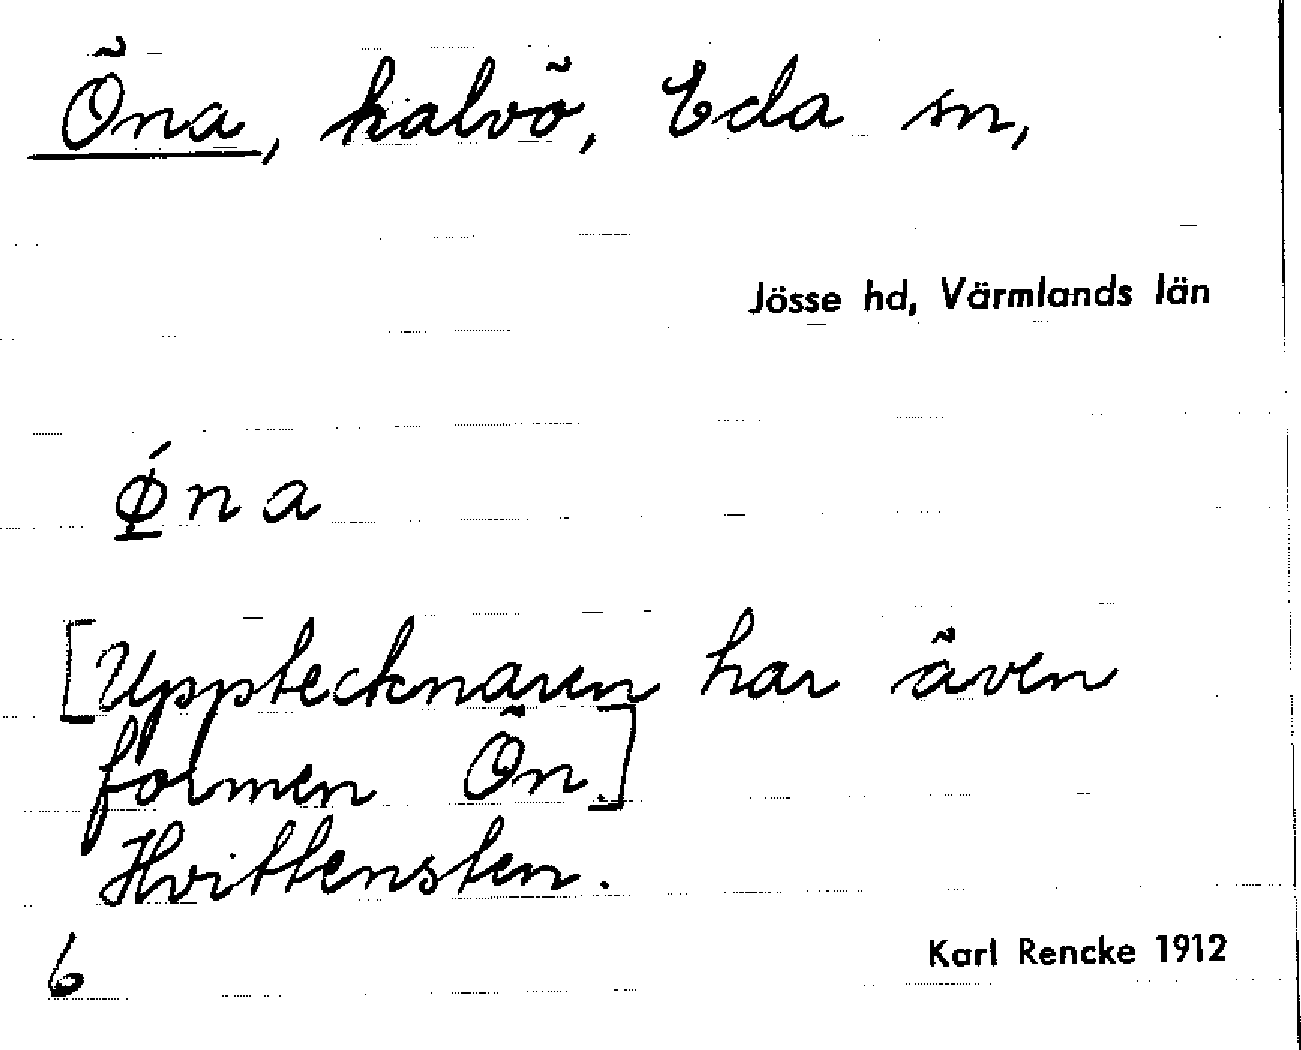 Öna, halvö, Eda sn,
Jösse hd, Värmlands län
Ǿ̲na
[Upptecknaren har även
formen Ön.]
Hvittensten.
6
Karl Rencke 1912